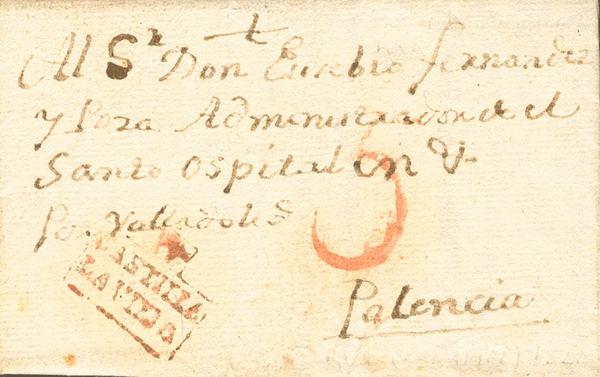 Al Sr Don Eusebio fernandez
y Poza Administrador de el
Santo Ospital en V.
Por Valladolid
CASTILLA
LA VIEJA
Palencia